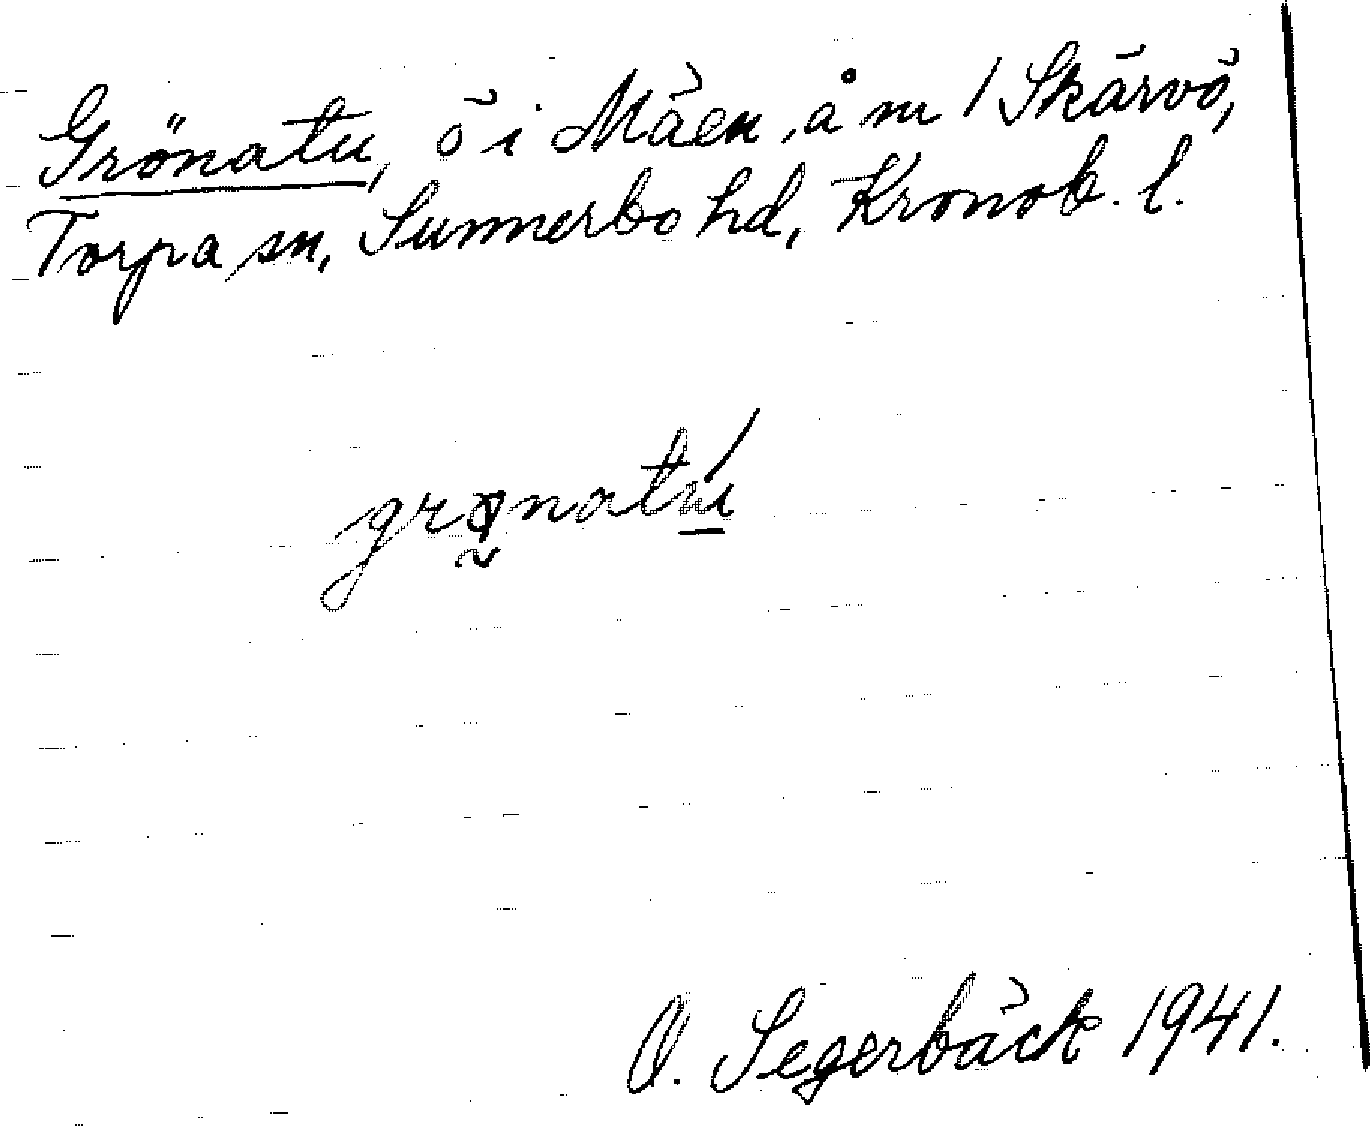 Grönatu, ö i Mäen, å m 1 Skärvö,
Torpa sn, Sunnerbo hd, Kronob. l.
O. Segerbäck 1941.